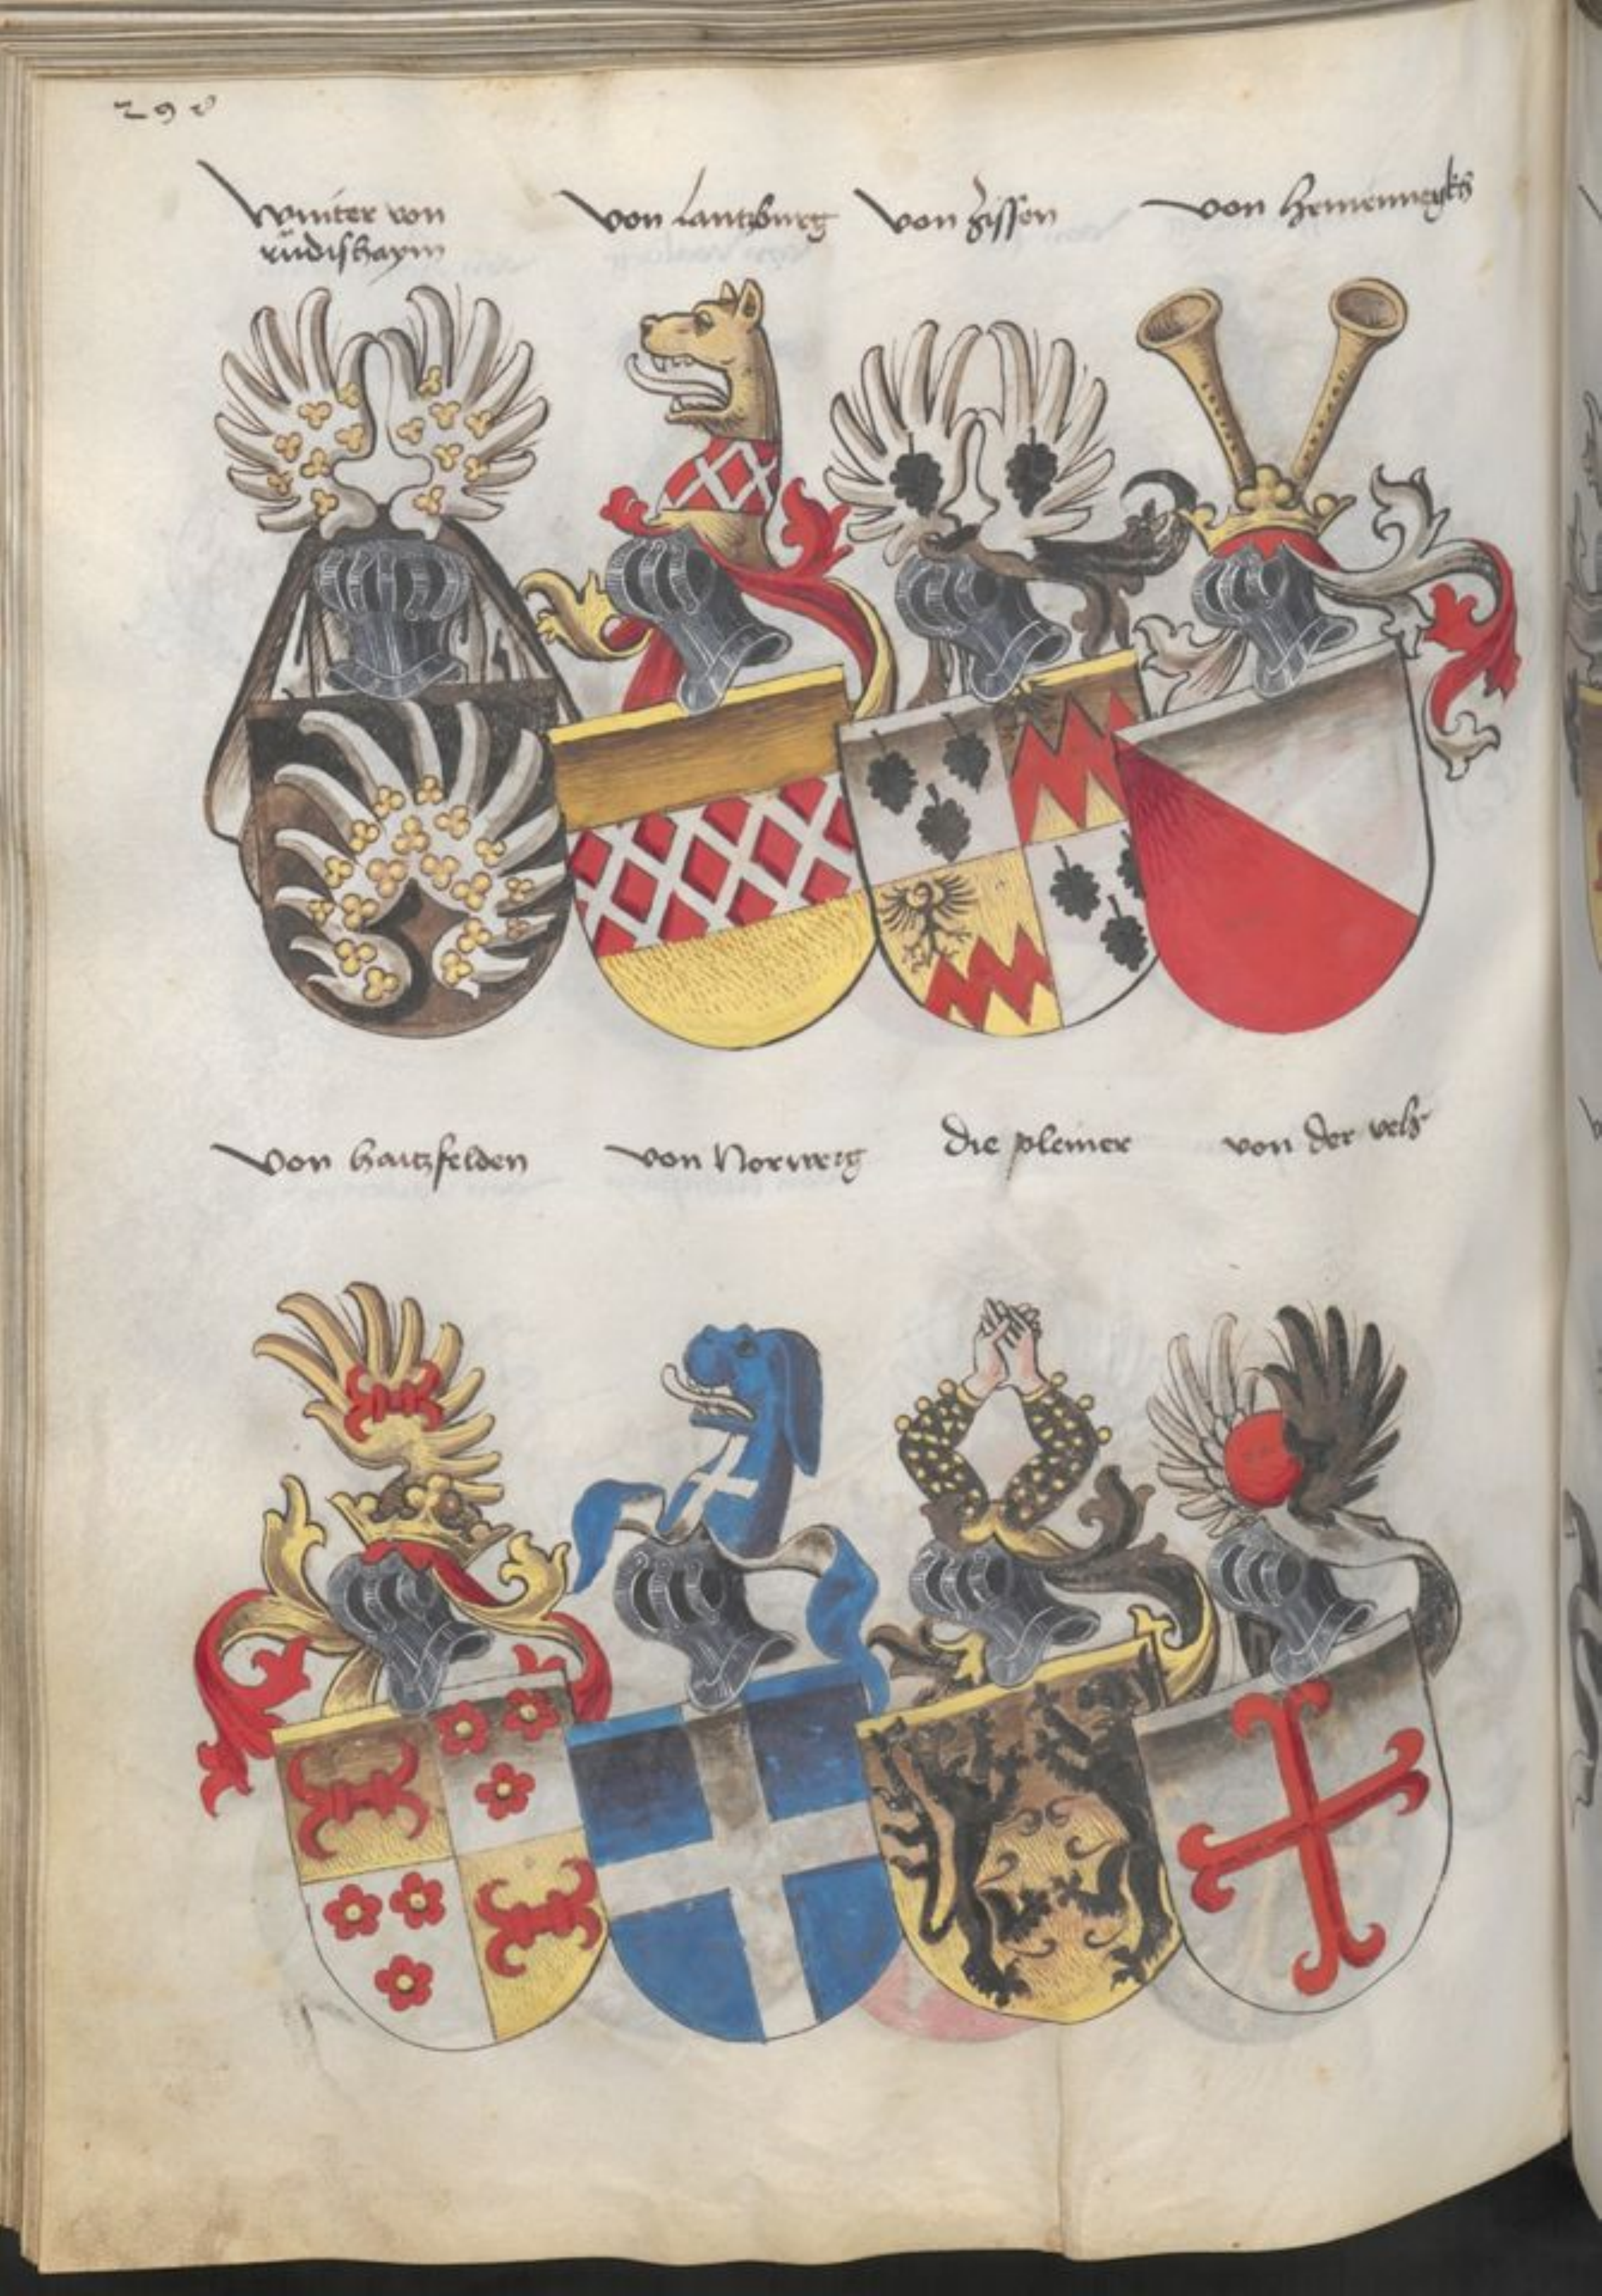 298
Winter von
rüdishaym
von Lantzburg
von Zissen
von
von hatzfelden
von Norweg
die pleiner
von der velß